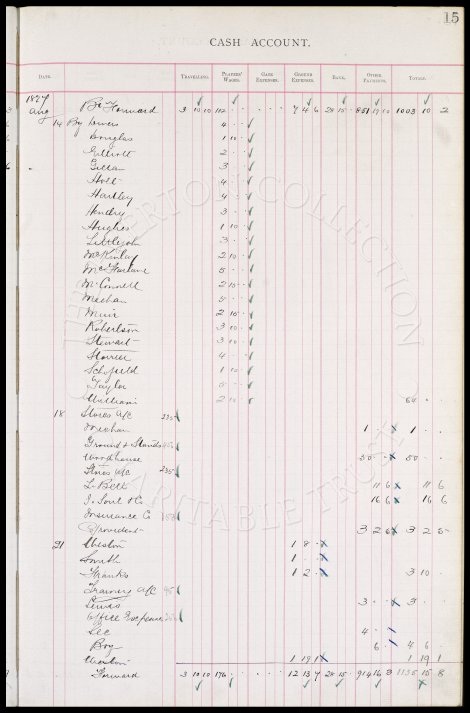 15
CASH ACCOUNT.
DATE. TRAVELLING. PLAYERS' WAGES. GATE EXPENSES. GROUND EXPENSES. BANK. OTHER PAYMENTS. TOTALS.
1897
Aug Bt Forward 3 10 10 112 7 4 6 28 15 851 19 10 1003 10 2
14 By Downs 4
Douglas 1 10
Elliott 2
Gillan 3
Holt 4
Hartley 4
Hendry 3
Hughes 1 10
Littlejohn 3
McKinlay 2 10
McFarlane 5
McConnell 2 10
Meehan 5
Muir 2 10
Robertson 3 10
Stewart 3 10
Storrier 4
Schofield 1 10
Taylor
Williams 2 10 64
18 Stores a/c 235
Meehan 1 1
Ground & Stands
Woodhouse 50 50
Stores a/c 235
L. Bell 11 6 11 6
J. Soul & Co 16 6 16 6
Insurance Co
Provident 3 2 6 3 2 6
21 Weston 1 8
Smith 1
Shanks 1 2 3 10
Training a/c
Lewis 3 3
Office Expenses
Sec 4
Boy 6 4 6
Weston 1 19 1 1 19 1
Forward 3 10 10 176 12 13 7 28 15 914 16 3 1135 15 8
THE EVERTON COLLECTION
CHARITABLE TRUST